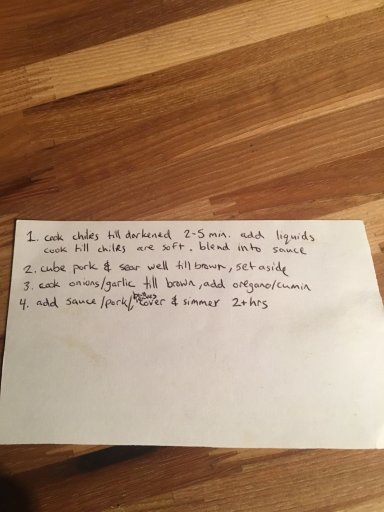 1. cook chiles till darkened 2-5 min. add liquids
cook till chiles are soft. blend into sauce
2. cube pork & sear well till brown, set aside
3. cook onions/garlic till brown, add oregano/cumin
4. add sauce/pork/ cover & simmer 2+ hrs